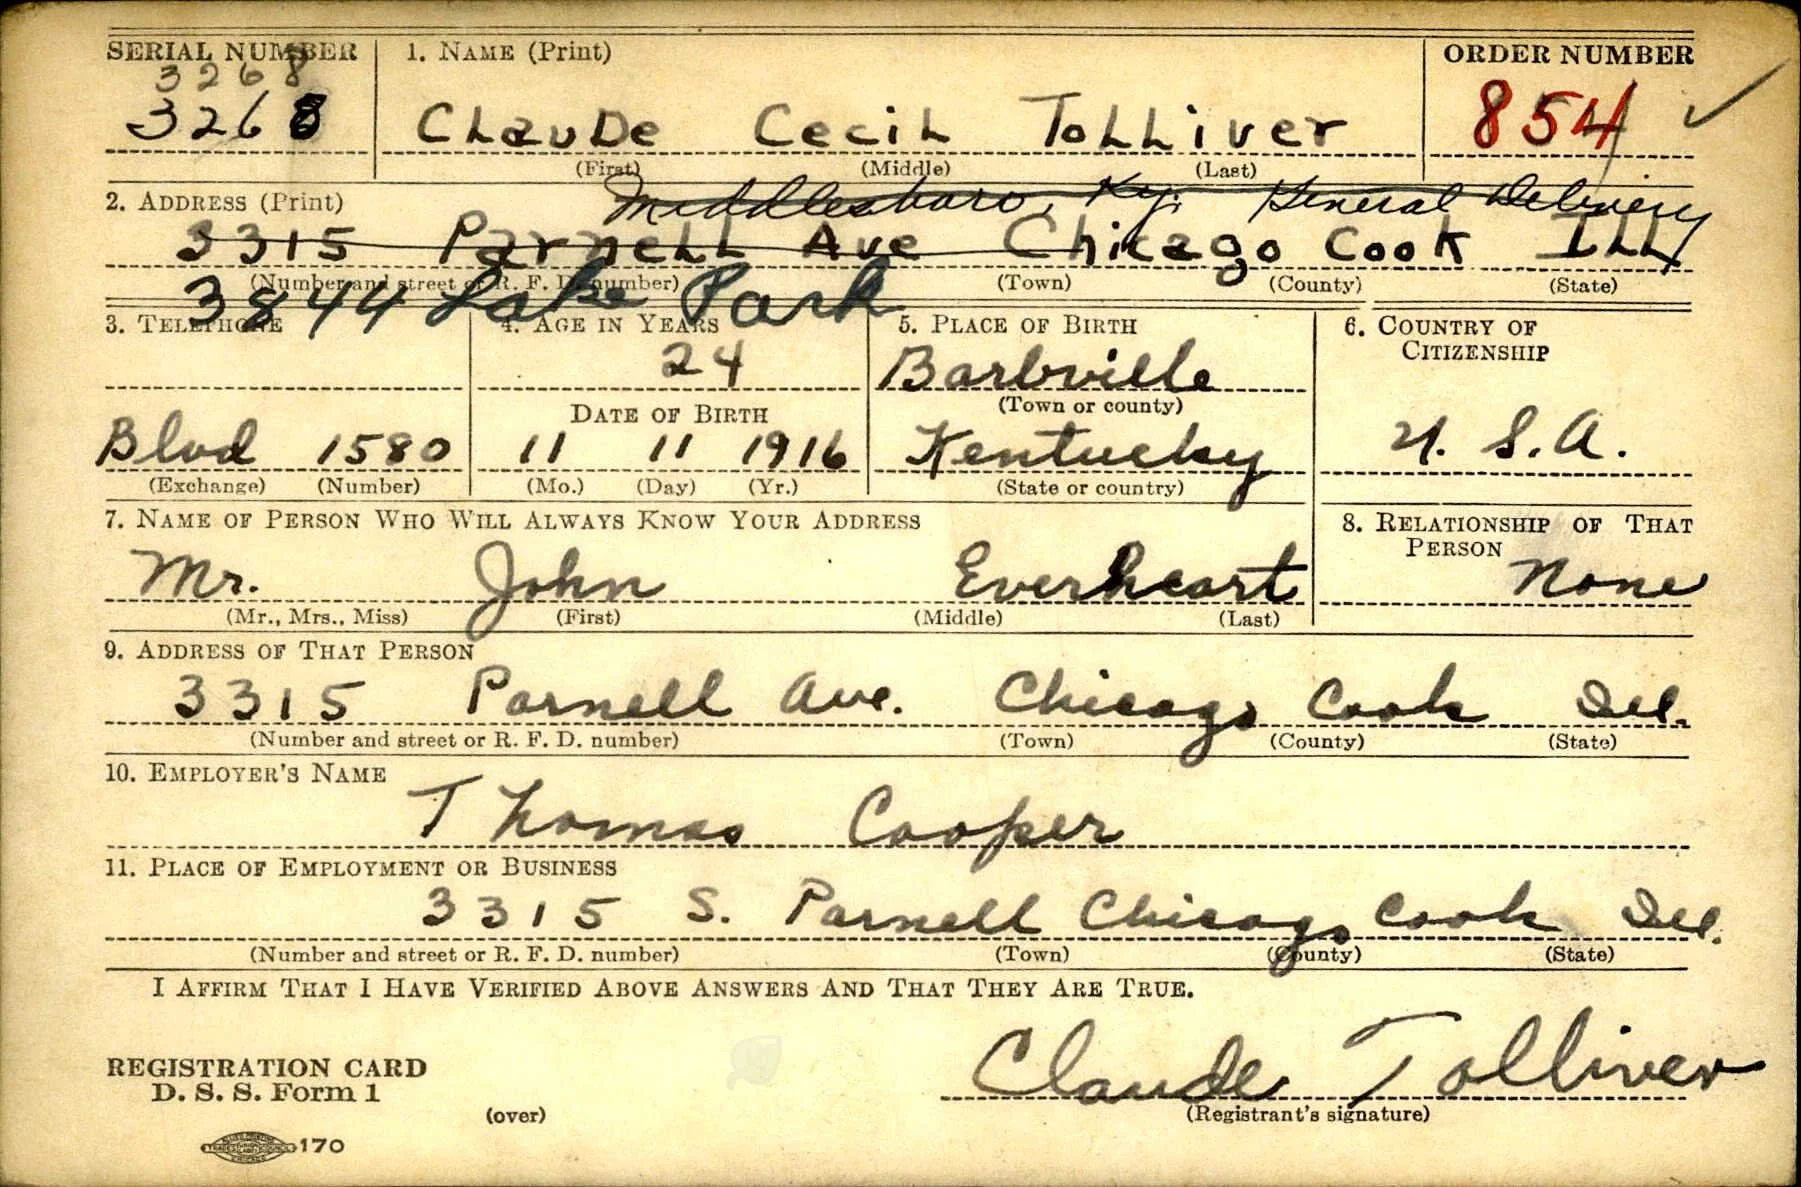 SERIAL NUMBER 1. NAME (Print) ORDER NUMBER
3268
3268 Claude Cecil Tolliver 854 ✓
(First) (Middle) (Last)
2. ADDRESS (Print) Middlesboro, Ky. General Delivery
3315 Parnell Ave Chicago Cook Ill
(Number and street or R. F. D. number) (Town) (County) (State)
3844 Lake Park
3. TELEPHONE 4. AGE IN YEARS 5. PLACE OF BIRTH 6. COUNTRY OF CITIZENSHIP
24 Barbville
DATE OF BIRTH (Town or county)
Blvd 1580 11 11 1916 Kentucky U. S. A.
(Exchange) (Number) (Mo.) (Day) (Yr.) (State or country)
7. NAME OF PERSON WHO WILL ALWAYS KNOW YOUR ADDRESS 8. RELATIONSHIP OF THAT PERSON
Mr. John Everheart None
(Mr., Mrs., Miss) (First) (Middle) (Last)
9. ADDRESS OF THAT PERSON
3315 Parnell Ave. Chicago Cook Ill.
(Number and street or R. F. D. number) (Town) (County) (State)
10. EMPLOYER'S NAME
Thomas Cooper
11. PLACE OF EMPLOYMENT OR BUSINESS
3315 S. Parnell Chicago Cook Ill.
(Number and street or R. F. D. number) (Town) (County) (State)
I AFFIRM THAT I HAVE VERIFIED ABOVE ANSWERS AND THAT THEY ARE TRUE.
Claude Tolliver
REGISTRATION CARD
D. S. S. Form 1
(over) (Registrant's signature)
170